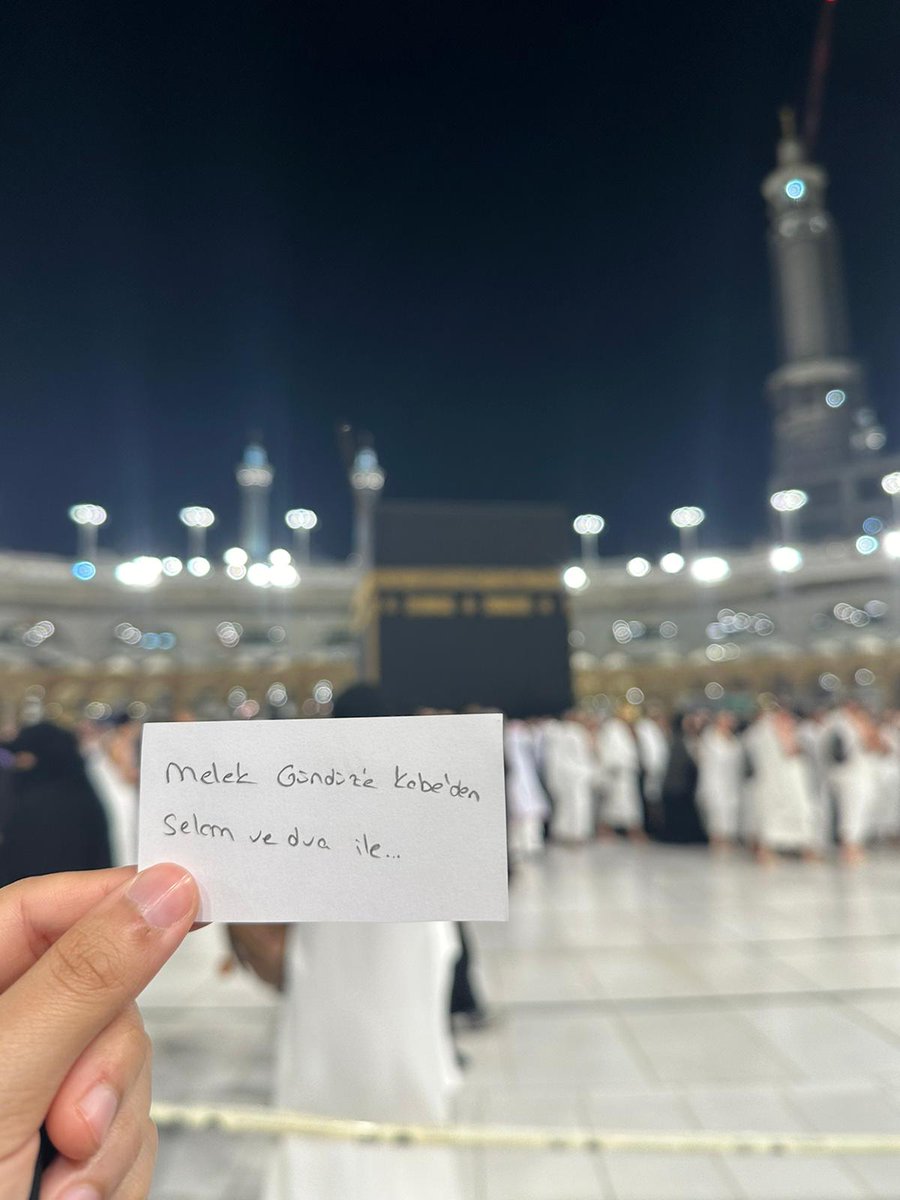 Melek Gündüz'e Kabe'den
Selam ve dua ile...